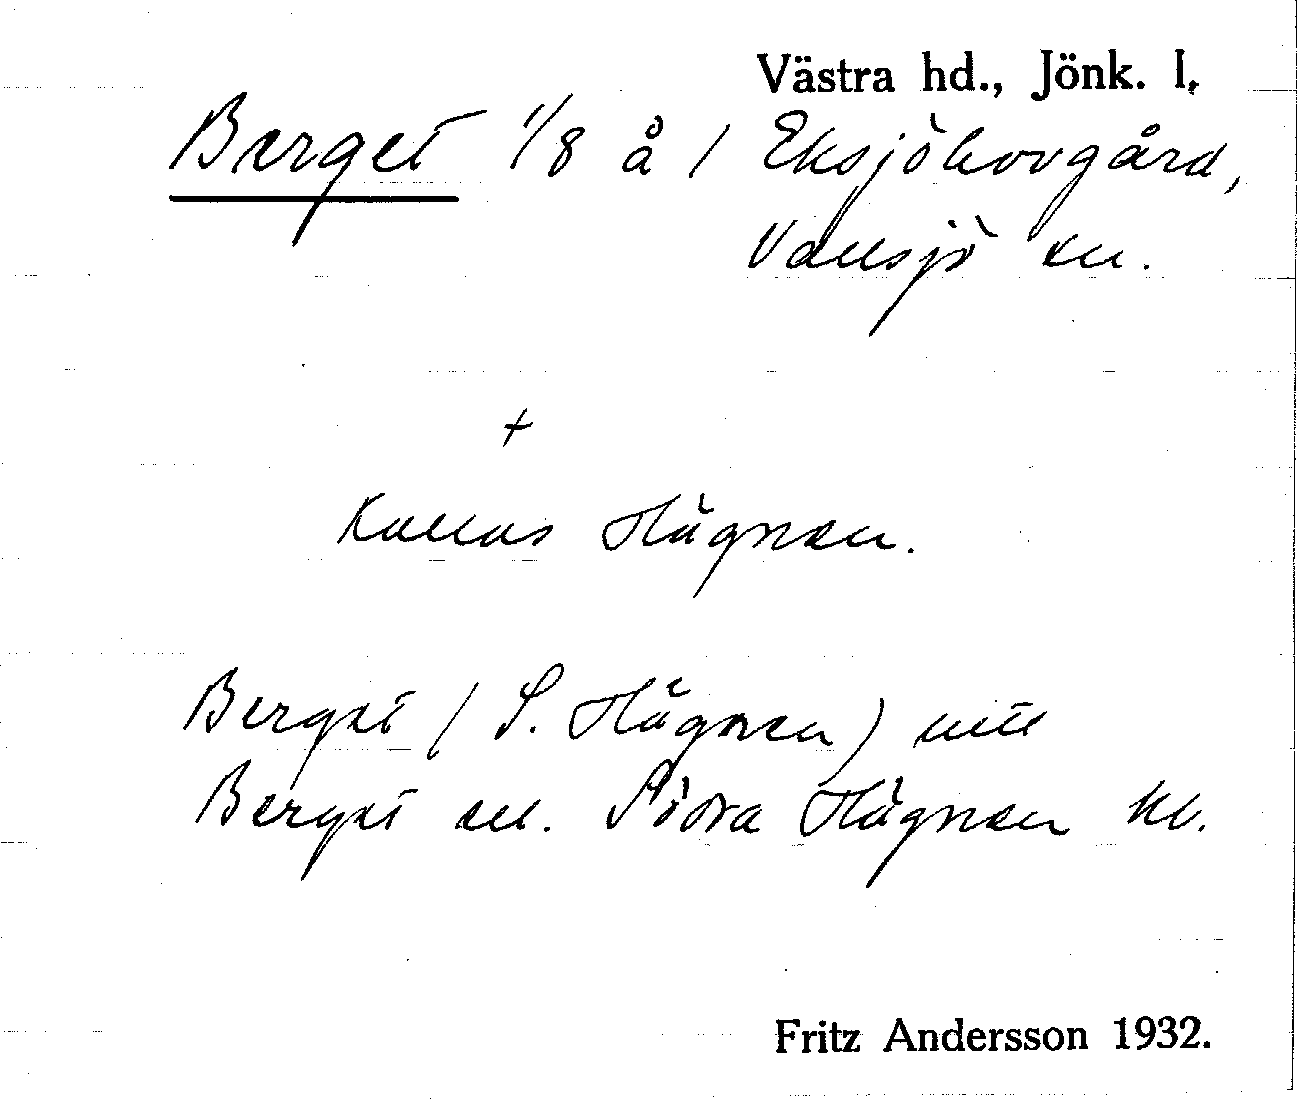 Västra hd., Jönk. l.
Berget 1/8 å 1 Eksjöhovgård,
Vallsjö sn.
+
Kallas Hägnen.
Berget (S. Hägnen)
Berget el. Södra Hägnen kl.
Fritz Andersson 1932.